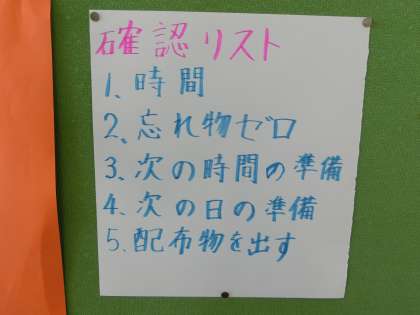 確認リスト
1、時間
2、忘れ物ゼロ
3、次の時間の準備
4、次の日の準備
5、配布物を出す